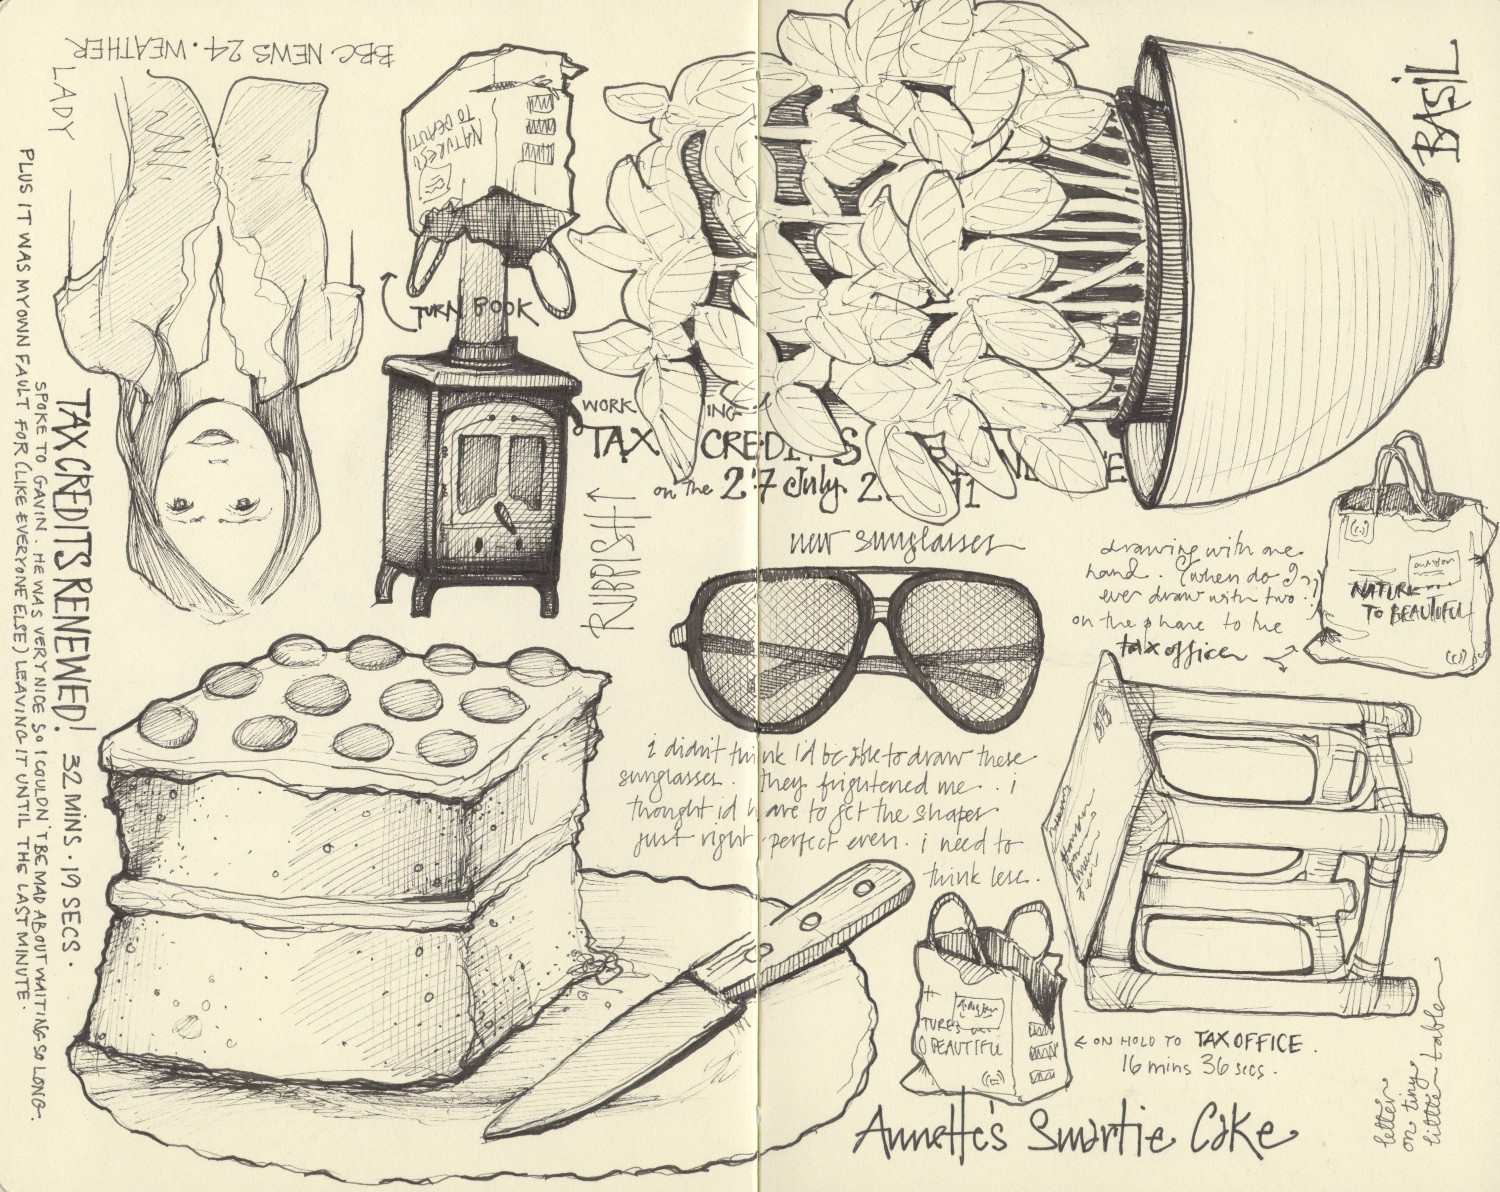 BBC NEWS 24 · WEATHER
LADY
PLUS IT WAS MY OWN FAULT FOR (LIKE EVERYONE ELSE) LEAVING IT UNTIL THE LAST MINUTE.
SPOKE TO GAVIN. HE WAS VERY NICE SO I COULDN'T BE MAD ABOUT WAITING SO LONG.
TAX CREDITS RENEWED! 32 MINS · 19 SECS ·
NATURES
TO BEAUTI
TURN BOOK
WORK ING
TAX CREDITS
on the 27 July
RUBBISH ↑
BASIL
new sunglasses
i didn't think i'd be able to draw these
sunglasses. they frightened me.. i
thought id have to get the shapes
just right - perfect even. i need to
think less.
drawing with one
hand. (when do I
ever draw with two?)
on the phone to the
tax office
NATURE
TO BEAUTIFUL
TURES
O BEAUTIFUL
← ON HOLD TO TAX OFFICE.
16 mins 36 secs.
letter
on tiny
little table
Annette's Smartie Cake